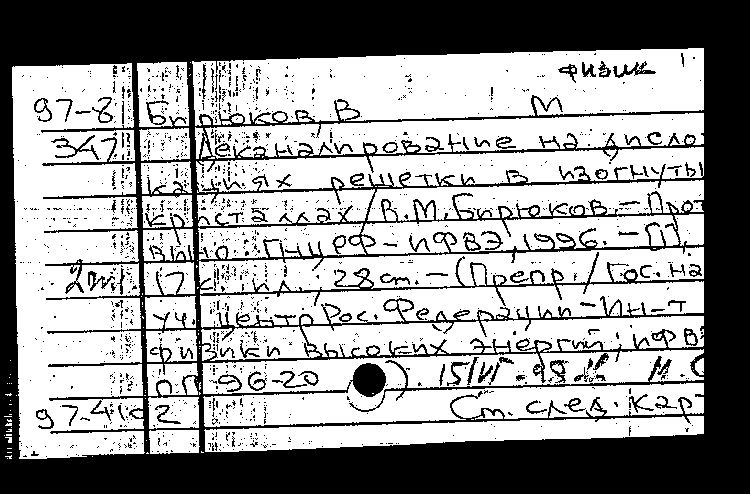 физик
97-8 Бирюков, В М
347 Деканалирование на дисло
кациях решетки в изогнуты
кристаллах / В.М.Бирюков.- Прот
вино: ГНЦ РФ - ИФВЭ, 1996. - [1],
17 с. ил.; 28 см. - (Препр. / Гос. на
уч. центр Рос. Федерации - Ин-т
физики высоких энергий; ИФВЭ
ОП 96-20 ). М.
97- 2 См. след. кар